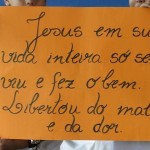 Jesus em su
vida inteira só se
viu e fez o bem.
Libertou do mal
e da dor.